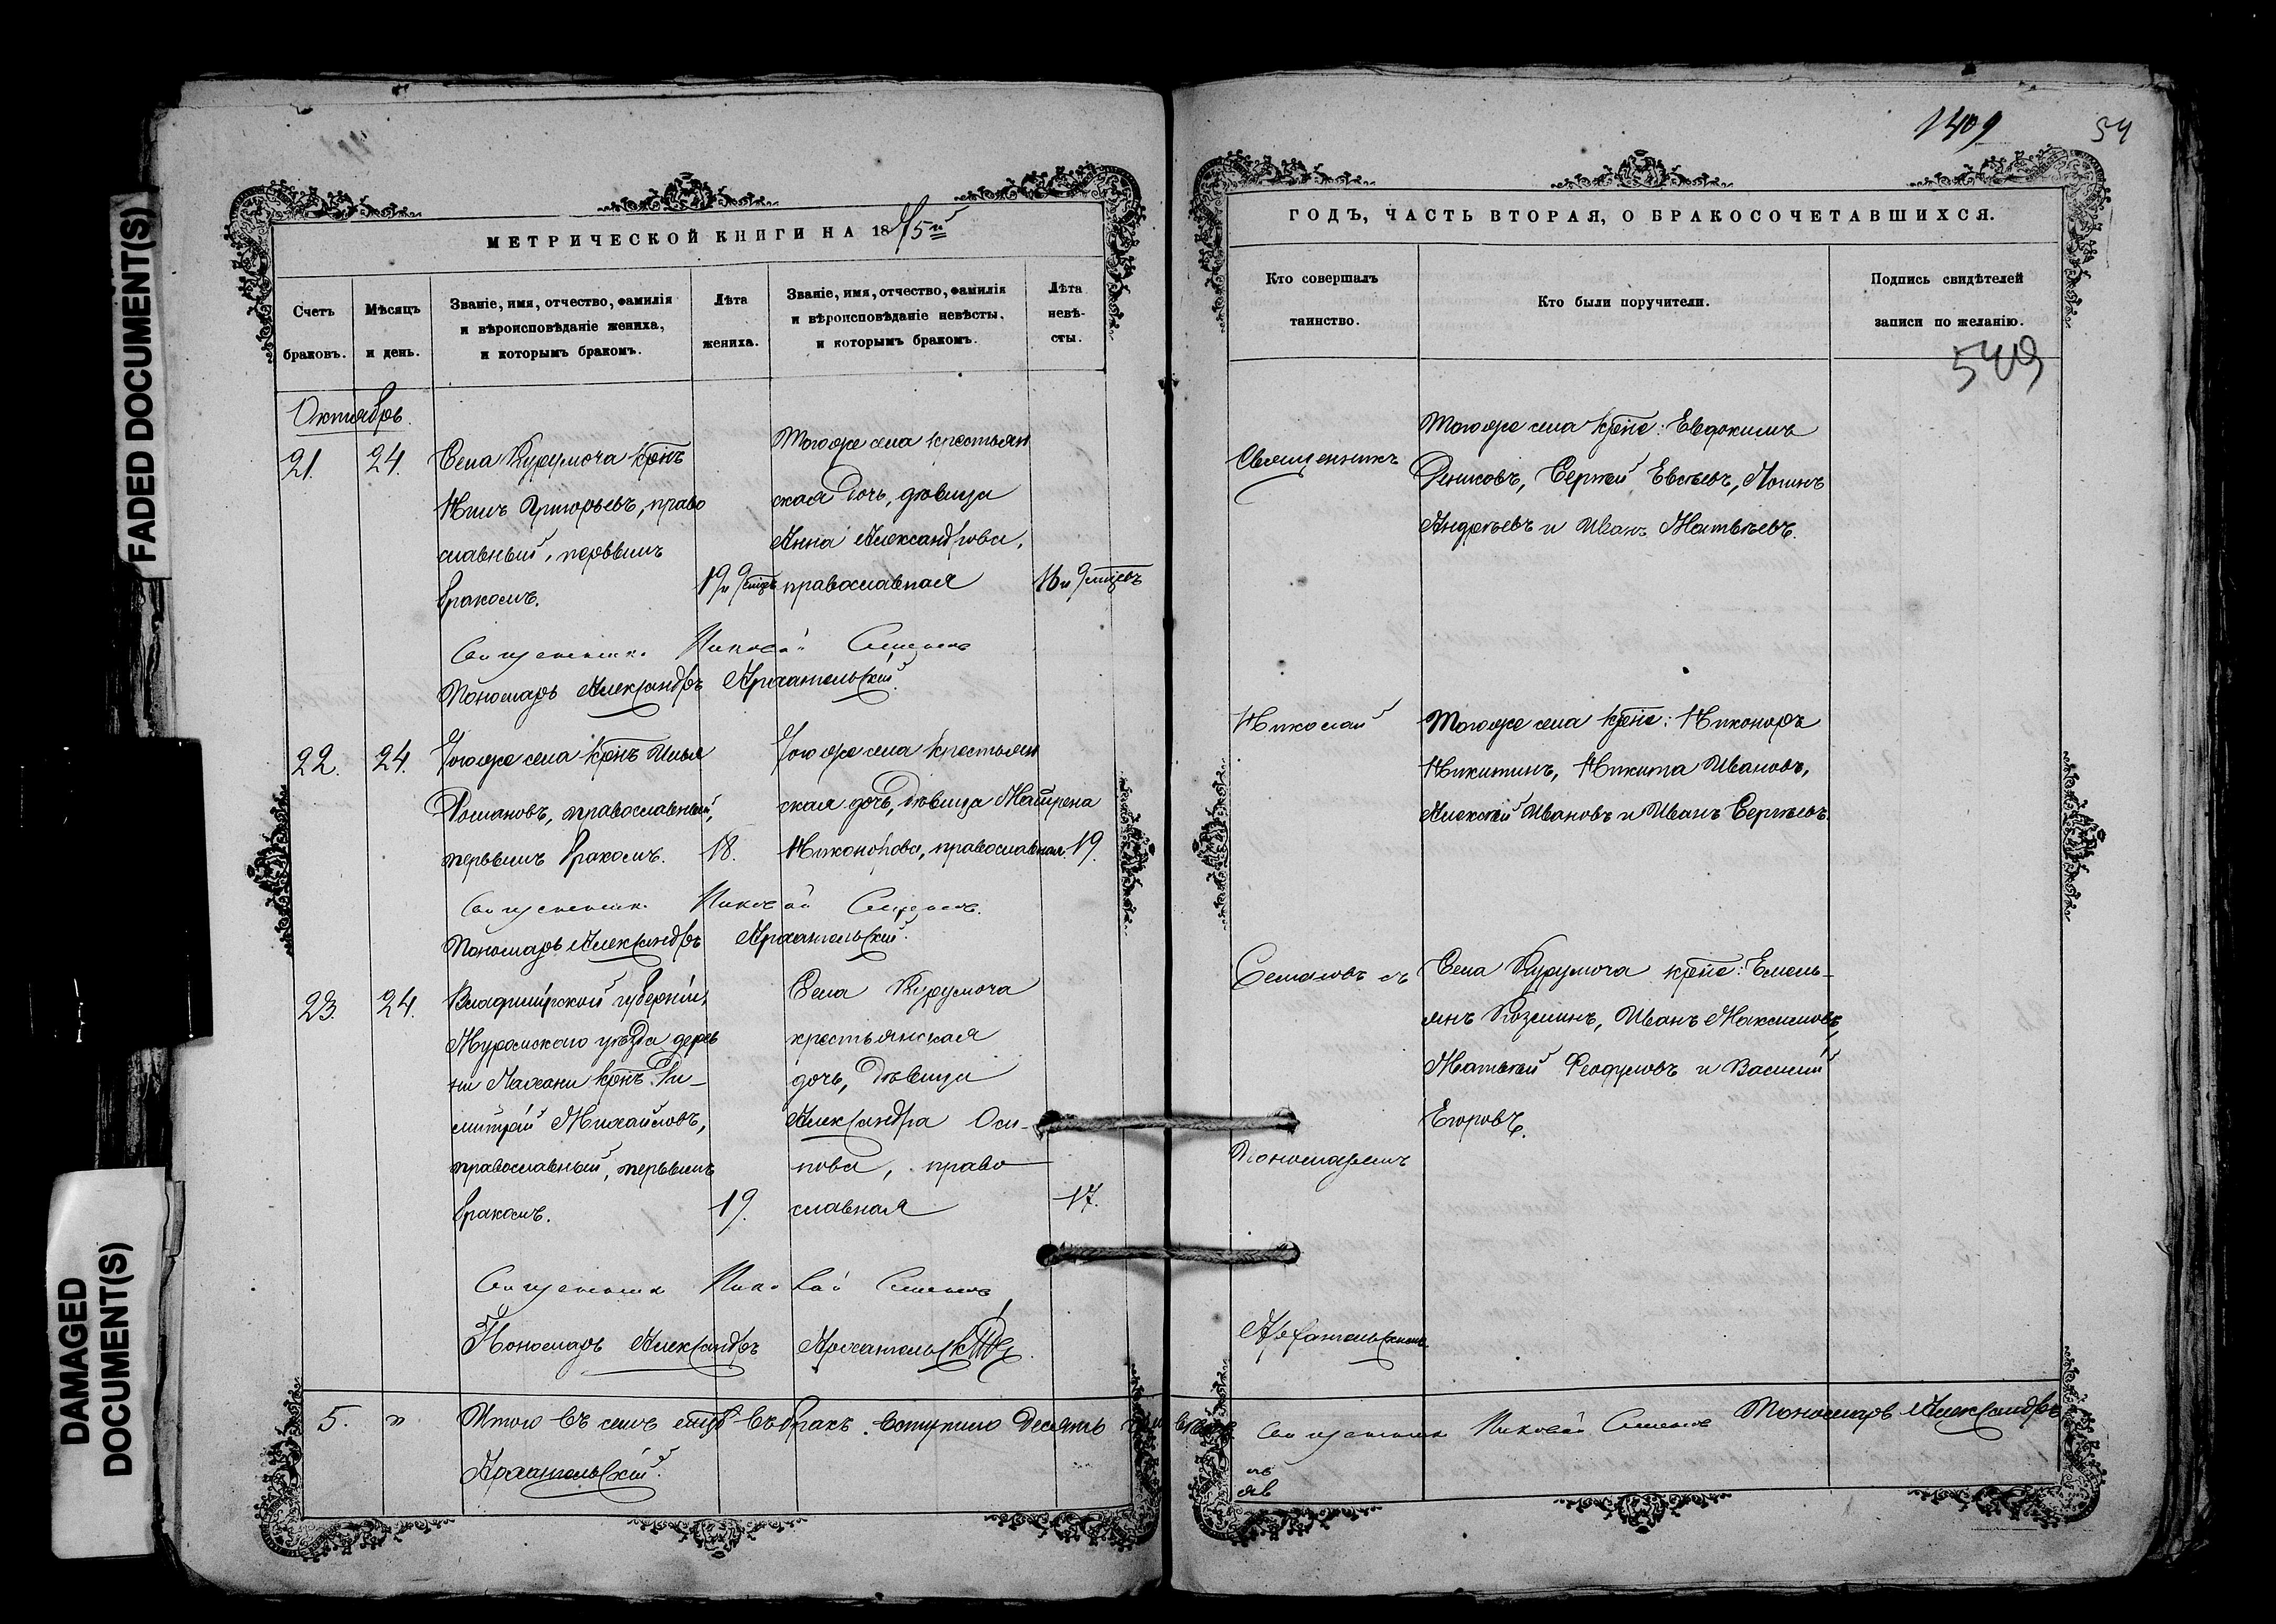 FADED DOCUMENT(S)
DAMAGED
DOCUMENT(S)
МЕТРИЧЕСКОЙ КНИГИ НА 1875й
Счетъ
браковъ.
Мѣсяцъ
и день.
Званіе, имя, отчество, фамилія
и вѣроисповѣданіе жениха,
и которымъ бракомъ.
Лѣта
жениха.
Званіе, имя, отчество, фамилія
и вѣроисповѣданіе невѣсты,
и которымъ бракомъ.
Лѣта
невѣ-
сты.
Октябрь.
21.
24.
Села Курумоча крнъ
Григорьевъ, право
славный, первымъ
бракомъ.
19 и 9 мцъ
Тогоже села крестьян
ская дочь, дѣвица
Анна Александрова,
православная
16 и 9 мцевъ
Священникъ Николай Семеновъ
Пономарь Александръ Архангельскій.
22.
24.
Тогоже села крнъ Илья
Романовъ, православный,
первымъ бракомъ.
18.
Тогоже села крестьян
ская дочь, дѣвица Матрена
Никонорова, православная.
19.
Священникъ Николай Семеновъ.
Пономарь Александръ Архангельскій.
23.
24.
Владимірской губерніи,
Муромскаго уѣзда дерев
ни крнъ Ди-
митрій Михайловъ,
православный, первымъ
бракомъ.
19.
Села Курумоча
крестьянская
дочь, дѣвица
Александра Оси-
пова, право
славная
17.
Священникъ Николай Семеновъ
Пономарь Александръ Архангельскій.
5.
"
Итого въ семъ въ бракъ вступило десять
Архангельскій.
1409
54
ГОДЪ, ЧАСТЬ ВТОРАЯ, О БРАКОСОЧЕТАВШИХСЯ.
Кто совершалъ
таинство.
Кто были поручители.
Подпись свидѣтелей
записи по желанію.
549
Священникъ
Николай
Семеновъ съ
Пономаремъ
Архангельскимъ
Тогоже села крне: Евдокимъ
Денисовъ, Сергей Евсѣевъ, Логинъ
Андреевъ и Иванъ Матвѣевъ.
Тогоже села крне: Никоноръ
Никитинъ, Никита Ивановъ,
Алексѣй Ивановъ и Иванъ Сергѣевъ.
Села Курумоча крне: Емель-
янъ Козминъ, Иванъ Максимовъ,
Матвей Феодуловъ и Василій
Егоровъ.
Священникъ Николай Семеновъ Пономарь Александръ